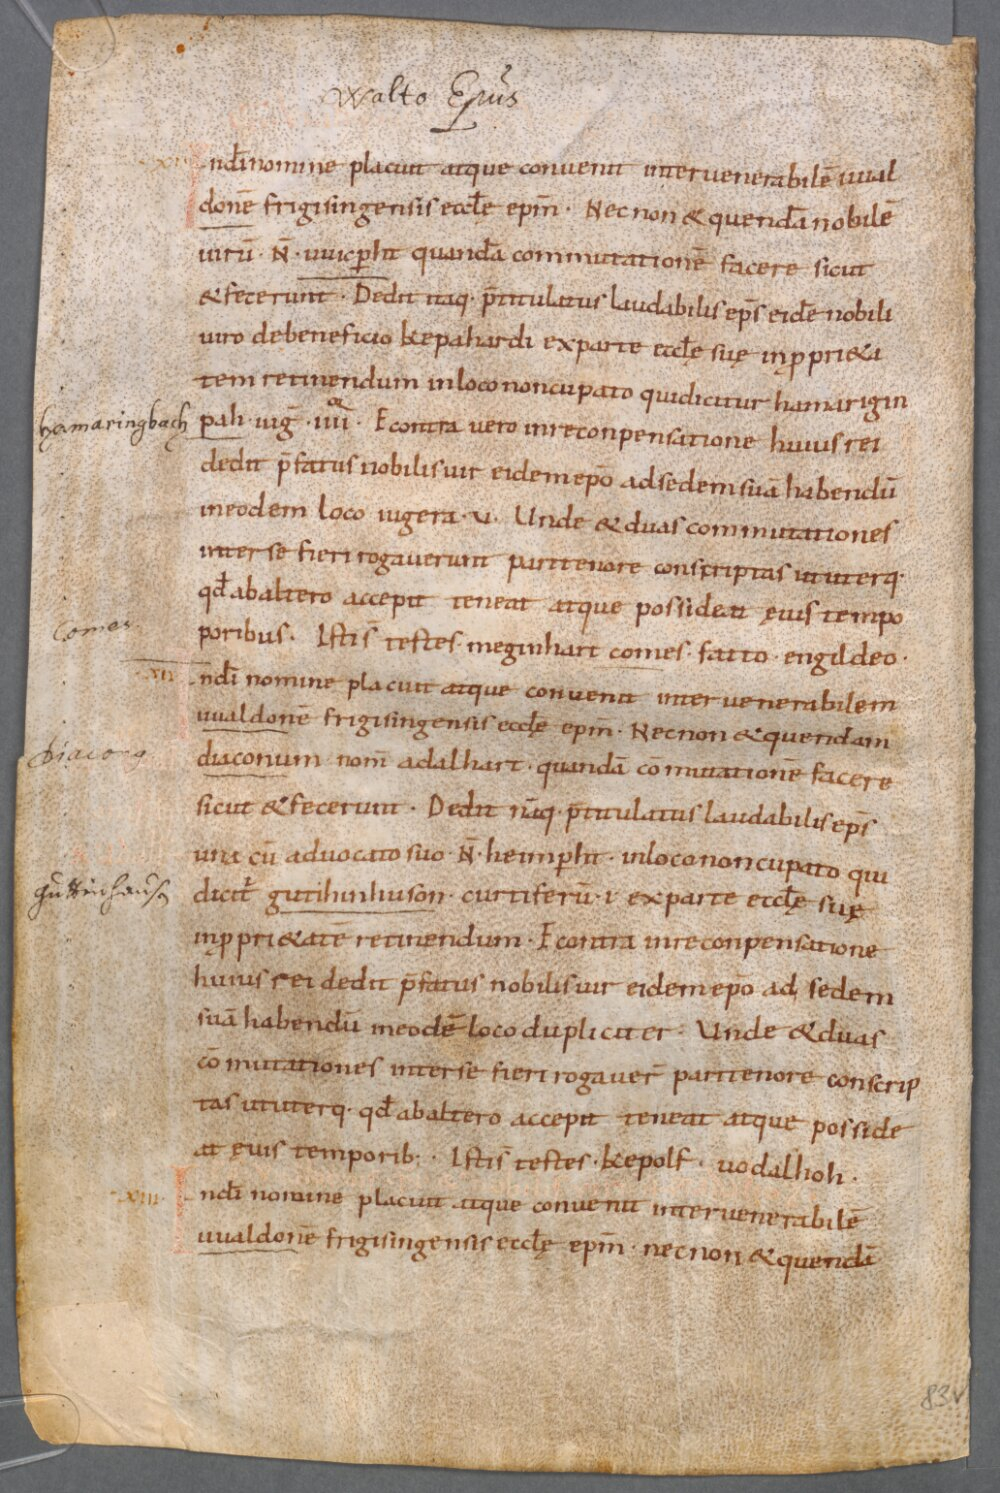 Walto Ep̄us
·XI· Indī nomine placuit atque convenit inter venerabilē uual
donē frigisingensis eccłe epm̄. Nec non & quendā nobilē
uirū. N̄. uuicp̱ht quandā commutationē facere sicut
& fecerunt. Dedit itaq· p̄titulatus laudabilis ep̄s eidē nobili
uiro de beneficio kepahardi ex parte eccłę suę in ꝓpri&a
tem retinendum in loco noncupato qui dicitur hamarigin
hamaringbach
pah· iuḡ· iiii. E contra uero in reconpensatione huius rei
dedit p̄fatus nobilis uir eidem epō ad sedem suā habendū
in eodem loco iugera· v. Unde & duas commutationes
inter se fieri rogauerunt pari tenore conscriptas ut uterq·
qd̄ ab altero accepit teneat atque possideat ęuis tempo
Comes
poribus. Istis testes· meginhart comes· fatto· engildeo·
·XII· Indī nomine placuit atque convenit inter venerabilem
uualdonē frigisingensis eccłę epm̄. Nec non & quendam
Diacong
diaconum nom̄ adalhart· quandā cōmutationē facere
sicut & fecerunt. Dedit itaq· p̄titulatus laudabilis ep̄s
una cū aduocato suo· N̄· heimp̱ht· in loco noncupato qui
Guttinhausn
dicit᷑ gutihinhuson· curtiferū· i ex parte eccłę suę
in ꝓpri&atē retinendum. E contra in reconpensatione
huius rei dedit p̄fatus nobilis uir eidem epō ad sedem
suā habendū in eodē loco dupliciter. Unde & duas
cōmutationes inter se fieri rogauer̄ pari tenore conscrip
tas ut uterq· qd̄ ab altero accepit teneat atque posside
at ęuis temporib·. Istis testes· kepolf· uodalhoh·
·XIII· Indī nomine placuit atque convenit inter venerabilē
uualdonē frigisingensis eccłę epm̄· nec non & quendā
83v